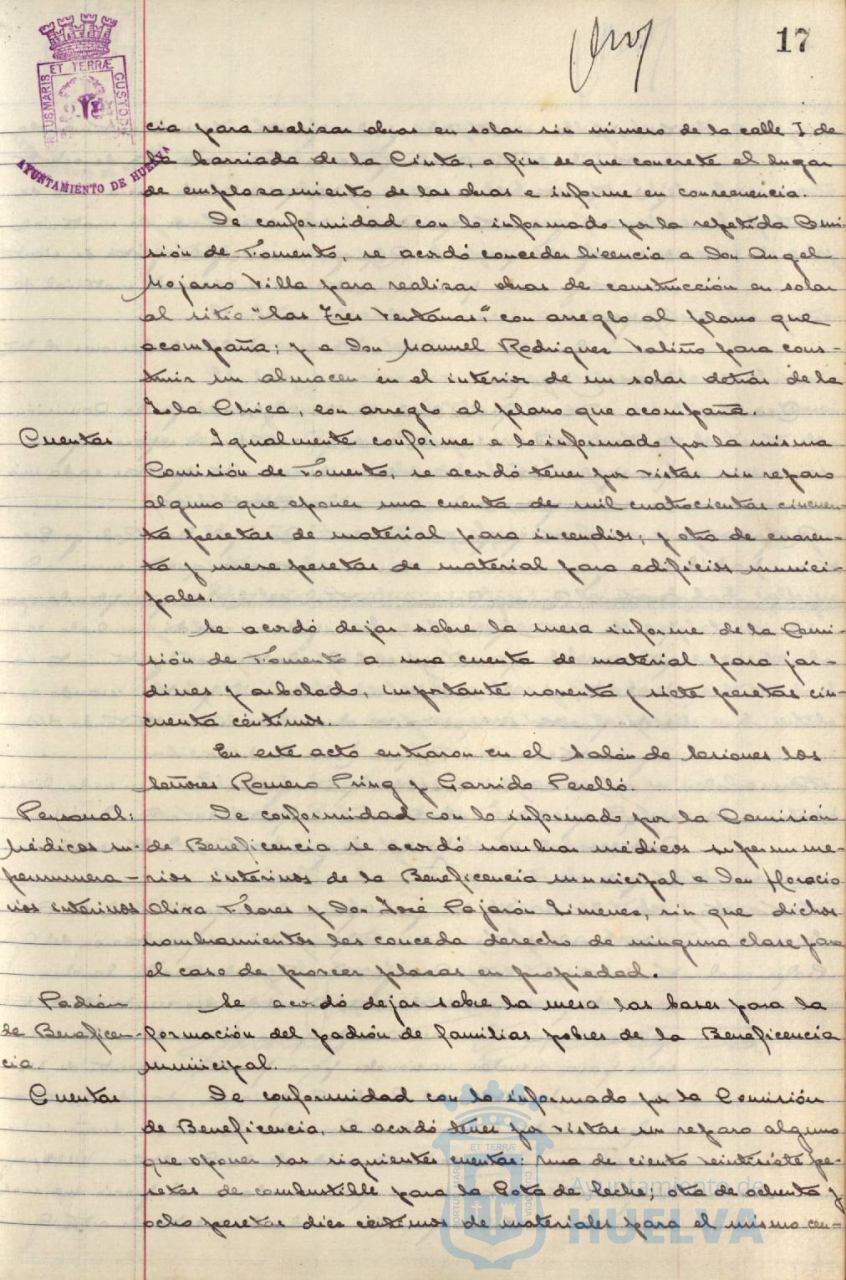 17
PORTUS MARIS ET TERRÆ CUSTODIA
AYUNTAMIENTO DE HUELVA
cia para realizar obras en solar sin número de la calle I de
la barriada de la Cinta, a fin de que concrete el lugar
de emplazamiento de las obras e informe en consecuencia.
De conformidad con lo informado por la repetida Comi-
sión de Fomento, se acordó conceder licencia a Don Angel
Mojarro Villa para realizar obras de construcción en solar
al sitio "Las Tres Ventanas", con arreglo al plano que
acompaña; y a Don Manuel Rodriguez Valiño para cons-
truir un almacen en el interior de un solar detrás de la
Isla Chica, con arreglo al plano que acompaña.
Cuentas
Igualmente conforme a lo informado por la misma
Comisión de Fomento, se acordó tener por vistas sin reparo
alguno que oponer una cuenta de mil cuatrocientas cincuen-
ta pesetas de material para incendios; y otra de cuaren-
ta y nueve pesetas de material para edificios munici-
pales.
Se acordó dejar sobre la mesa informe de la Comi-
sión de Fomento a una cuenta de material para jar-
dines y arbolado, importante noventa y siete pesetas cin-
cuenta céntimos.
En este acto entraron en el Salón de Sesiones los
Señores Romero Pring y Garrido Perelló.
Personal:
Médicos su-
pernumera-
rios interinos
De conformidad con lo informado por la Comisión
de Beneficencia se acordó nombrar médicos supernume-
rios interinos de la Beneficencia municipal a Don Horacio
Oliva Flores y Don José Pajarón Jimenez, sin que dichos
nombramientos les conceda derecho de ninguna clase para
el caso de proveer plazas en propiedad.
Padrón
de Beneficen-
cia
Se acordó dejar sobre la mesa las bases para la
formación del padrón de familias pobres de la Beneficencia
municipal.
Cuentas
De conformidad con lo informado por la Comisión
de Beneficencia, se acordó tener por vistas sin reparo alguno
que oponer las siguientes cuentas: una de ciento veintisiete pe-
setas de combustible para la Gota de leche; otra de ochenta y
ocho pesetas diez céntimos de materiales para el mismo cen-
Ayuntamiento de
HUELVA